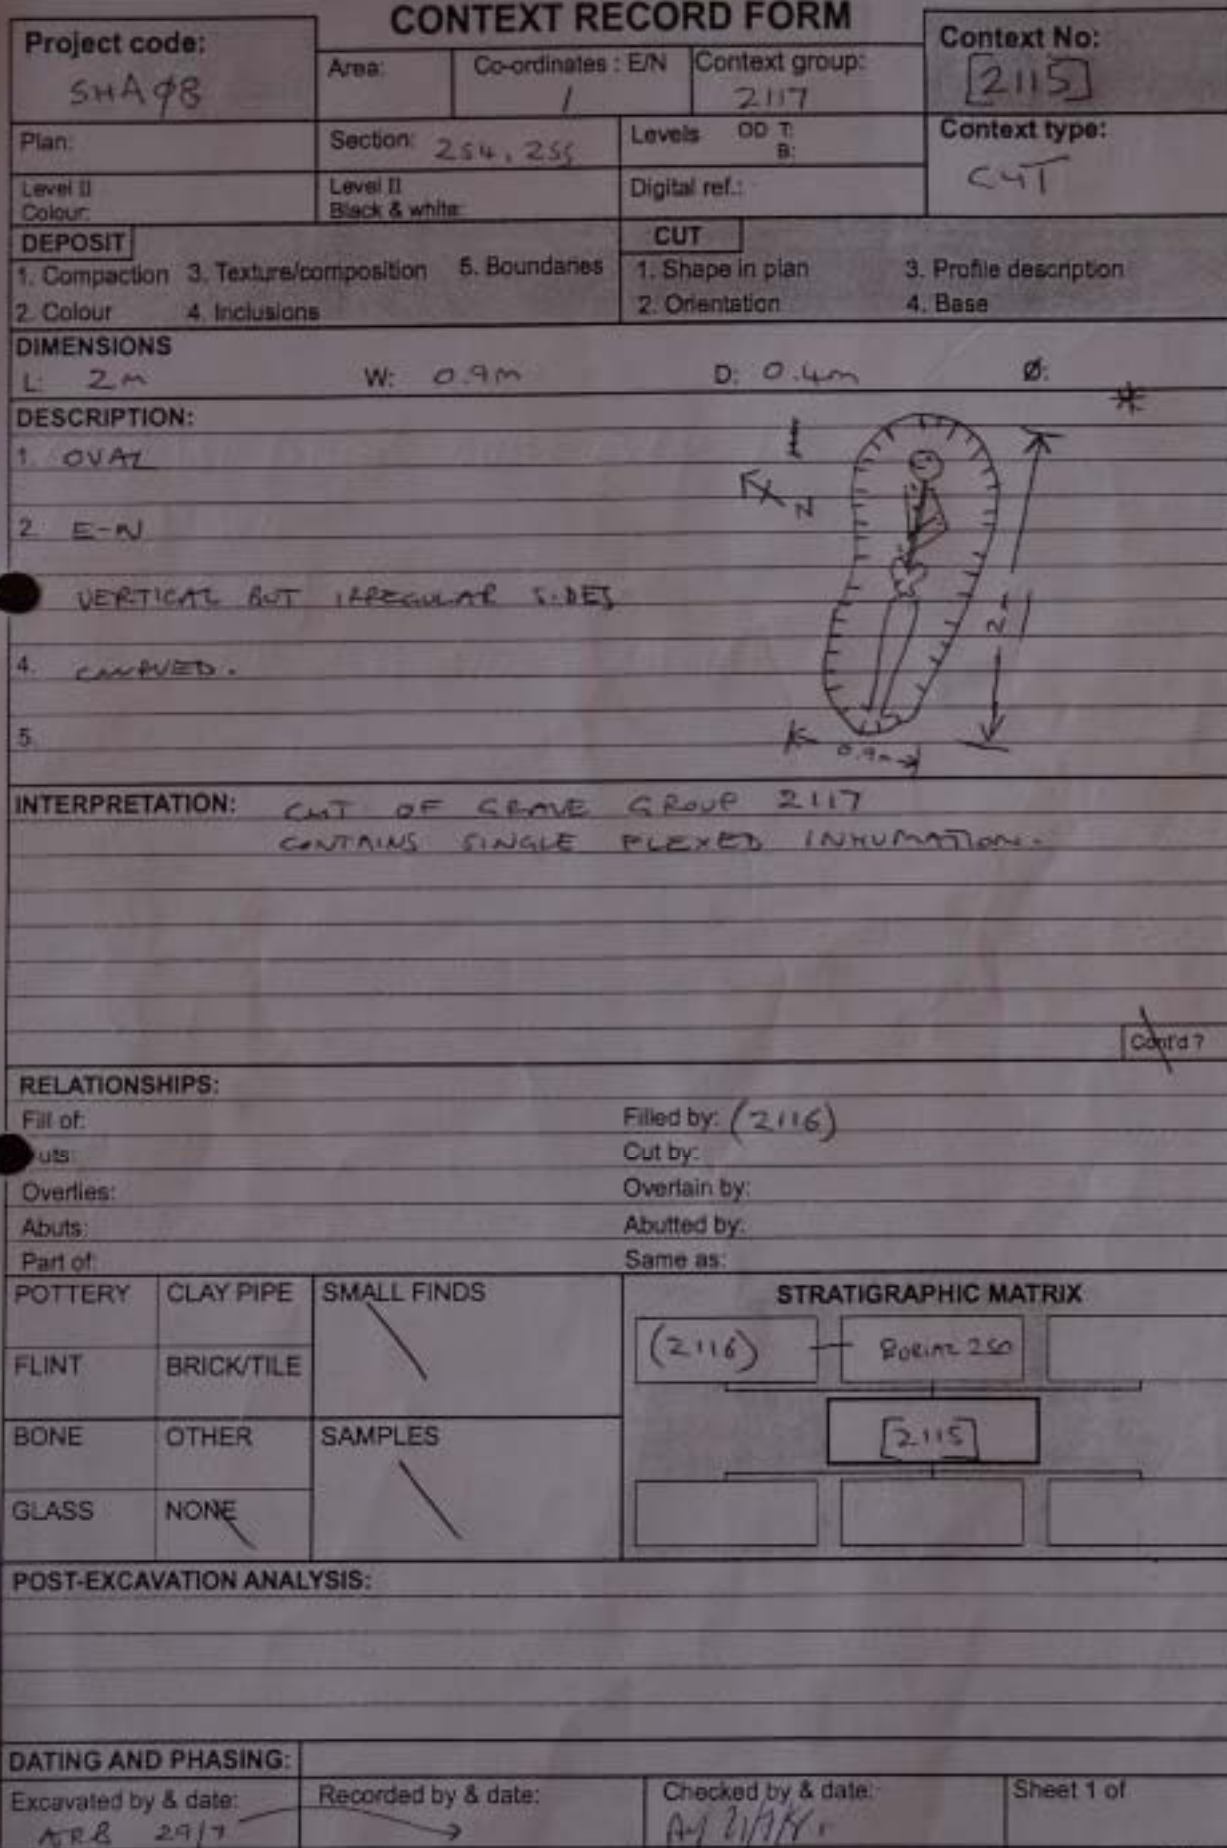 CONTEXT RECORD FORM
Project code:
SHAØ8
Area:
Co-ordinates : E/N
/
Context group:
2117
Context No:
[2115]
Plan:
Section: 254, 255
Levels OD T:
B:
Context type:
CUT
Level II
Colour:
Level II
Black & white:
Digital ref.:
DEPOSIT
1. Compaction 3. Texture/composition 5. Boundaries
2. Colour 4. Inclusions
CUT
1. Shape in plan 3. Profile description
2. Orientation 4. Base
DIMENSIONS
L: 2m W: 0.9m D: 0.4m Ø:
DESCRIPTION:
1. OVAL
N
2. E-W
VERTICAL BUT IRREGULAR SIDES
2m
4. CURVED.
5.
0.9m
INTERPRETATION: CUT OF GRAVE GROUP 2117
CONTAINS SINGLE FLEXED INHUMATION.
Cont'd ?
RELATIONSHIPS:
Fill of: Filled by: (2116)
uts: Cut by:
Overlies: Overlain by:
Abuts: Abutted by:
Part of: Same as:
POTTERY CLAY PIPE SMALL FINDS
FLINT BRICK/TILE
BONE OTHER SAMPLES
GLASS NONE
STRATIGRAPHIC MATRIX
(2116) BURIAL 250
[2115]
POST-EXCAVATION ANALYSIS:
DATING AND PHASING:
Excavated by & date:
ARB 29/7
Recorded by & date:
Checked by & date:
Sheet 1 of